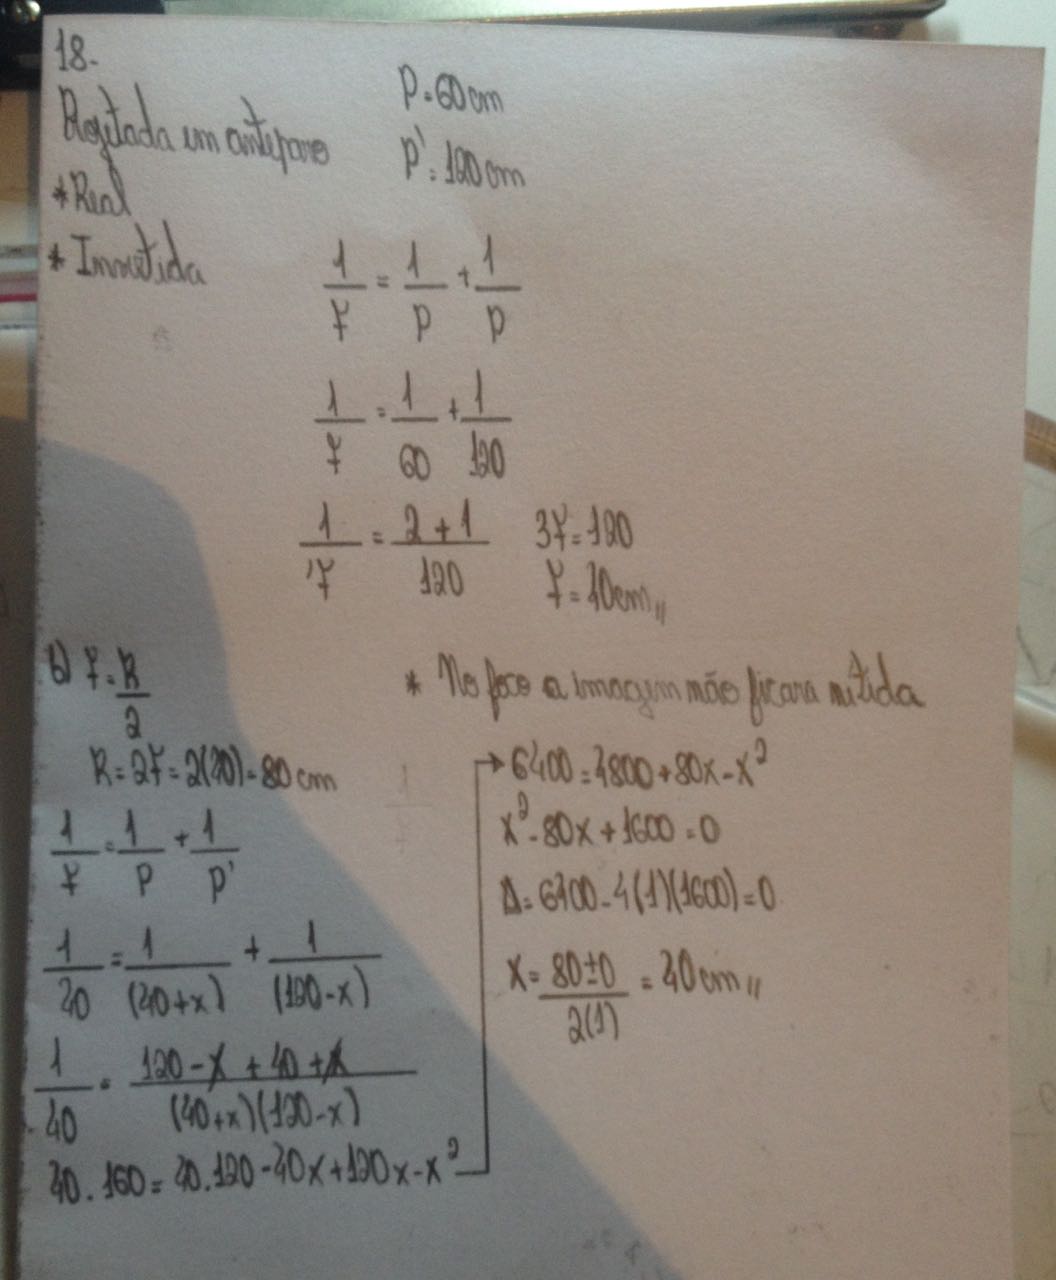 18-
Projetada em anteparo
* Real
* Invertida
P = 60 cm
P' = 120 cm
1/f = 1/P + 1/P
1/f = 1/60 + 1/120
1/f = (2 + 1)/120
3f = 120
f = 40cm //
b) f = R/2
R = 2f = 2(40) = 80 cm
1/f = 1/P + 1/P'
1/40 = 1/(40+x) + 1/(120-x)
1/40 = (120 - x + 40 + x)/((40+x)(120-x))
40 . 160 = 40.120 - 40x + 120x - x²
* No foco a imagem não ficara nitida
→ 6400 = 4800 + 80x - x²
x² - 80x + 1600 = 0
Δ = 6400 - 4(1)(1600) = 0
x = (80 ± 0)/2(1) = 40cm //